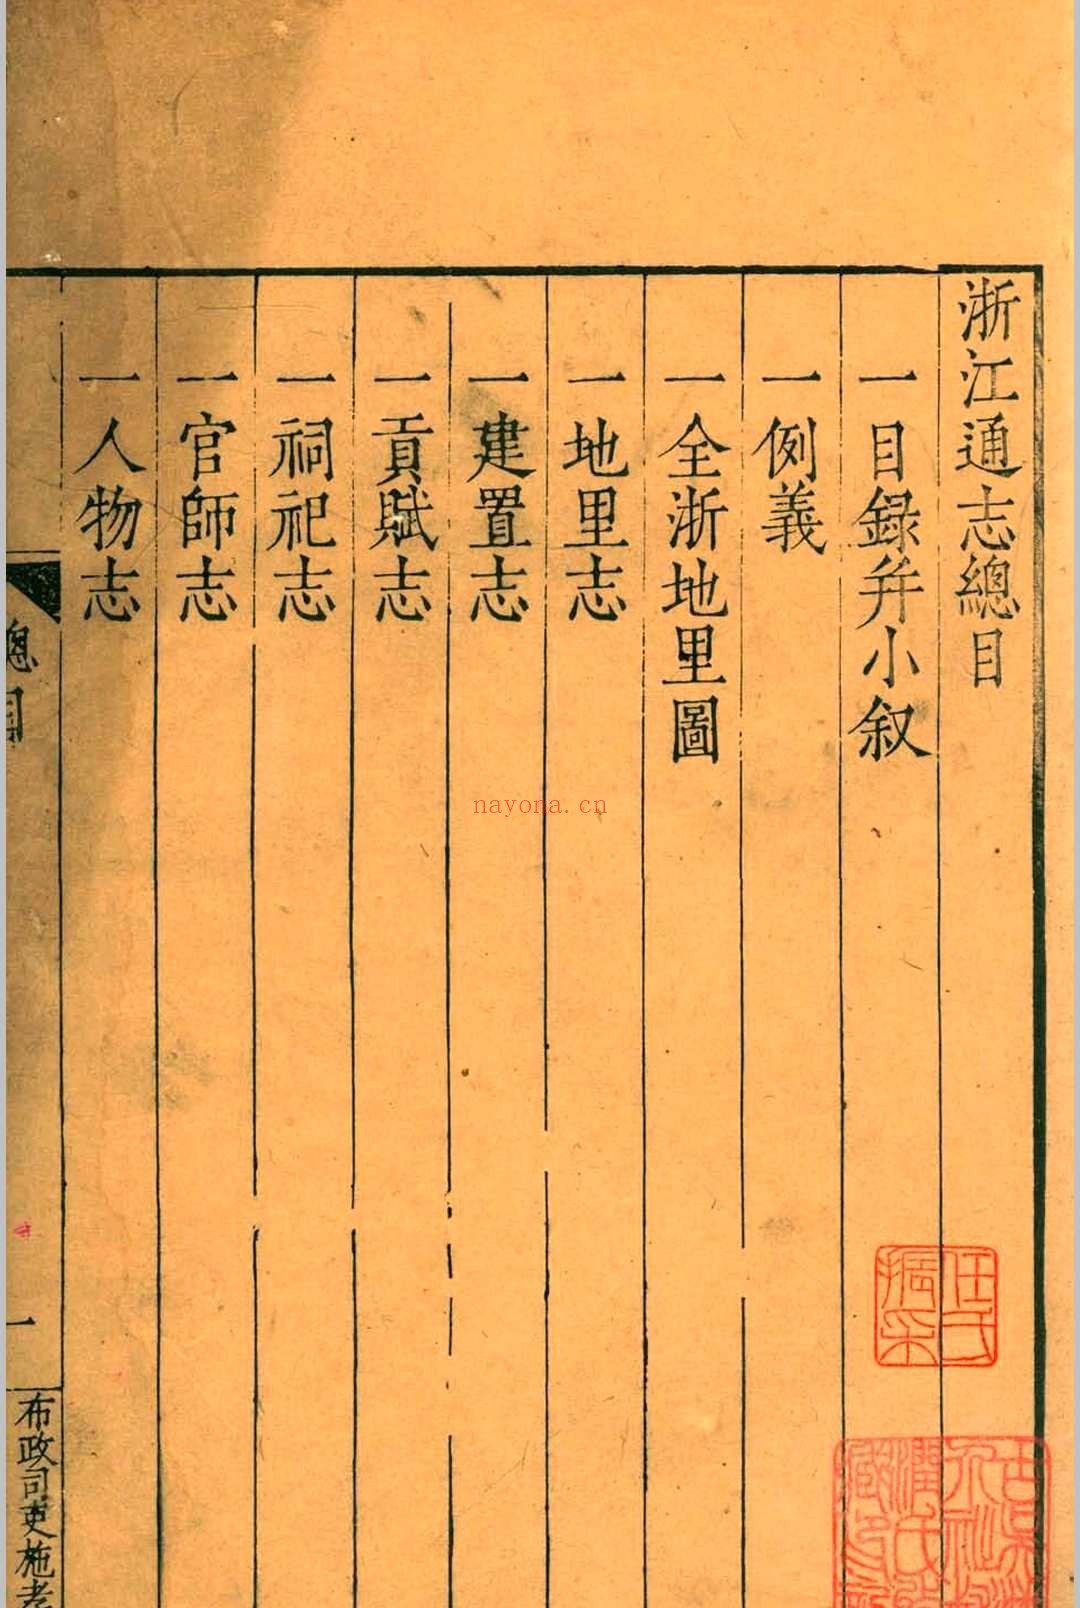 浙江通志總目
一目録并小叙
一例義
一全浙地里圖
一地里志
一建置志
一貢賦志
一祠祀志
一官師志
一人物志
總目
一
布政司吏施孝
nayona.cn
任氏
振采